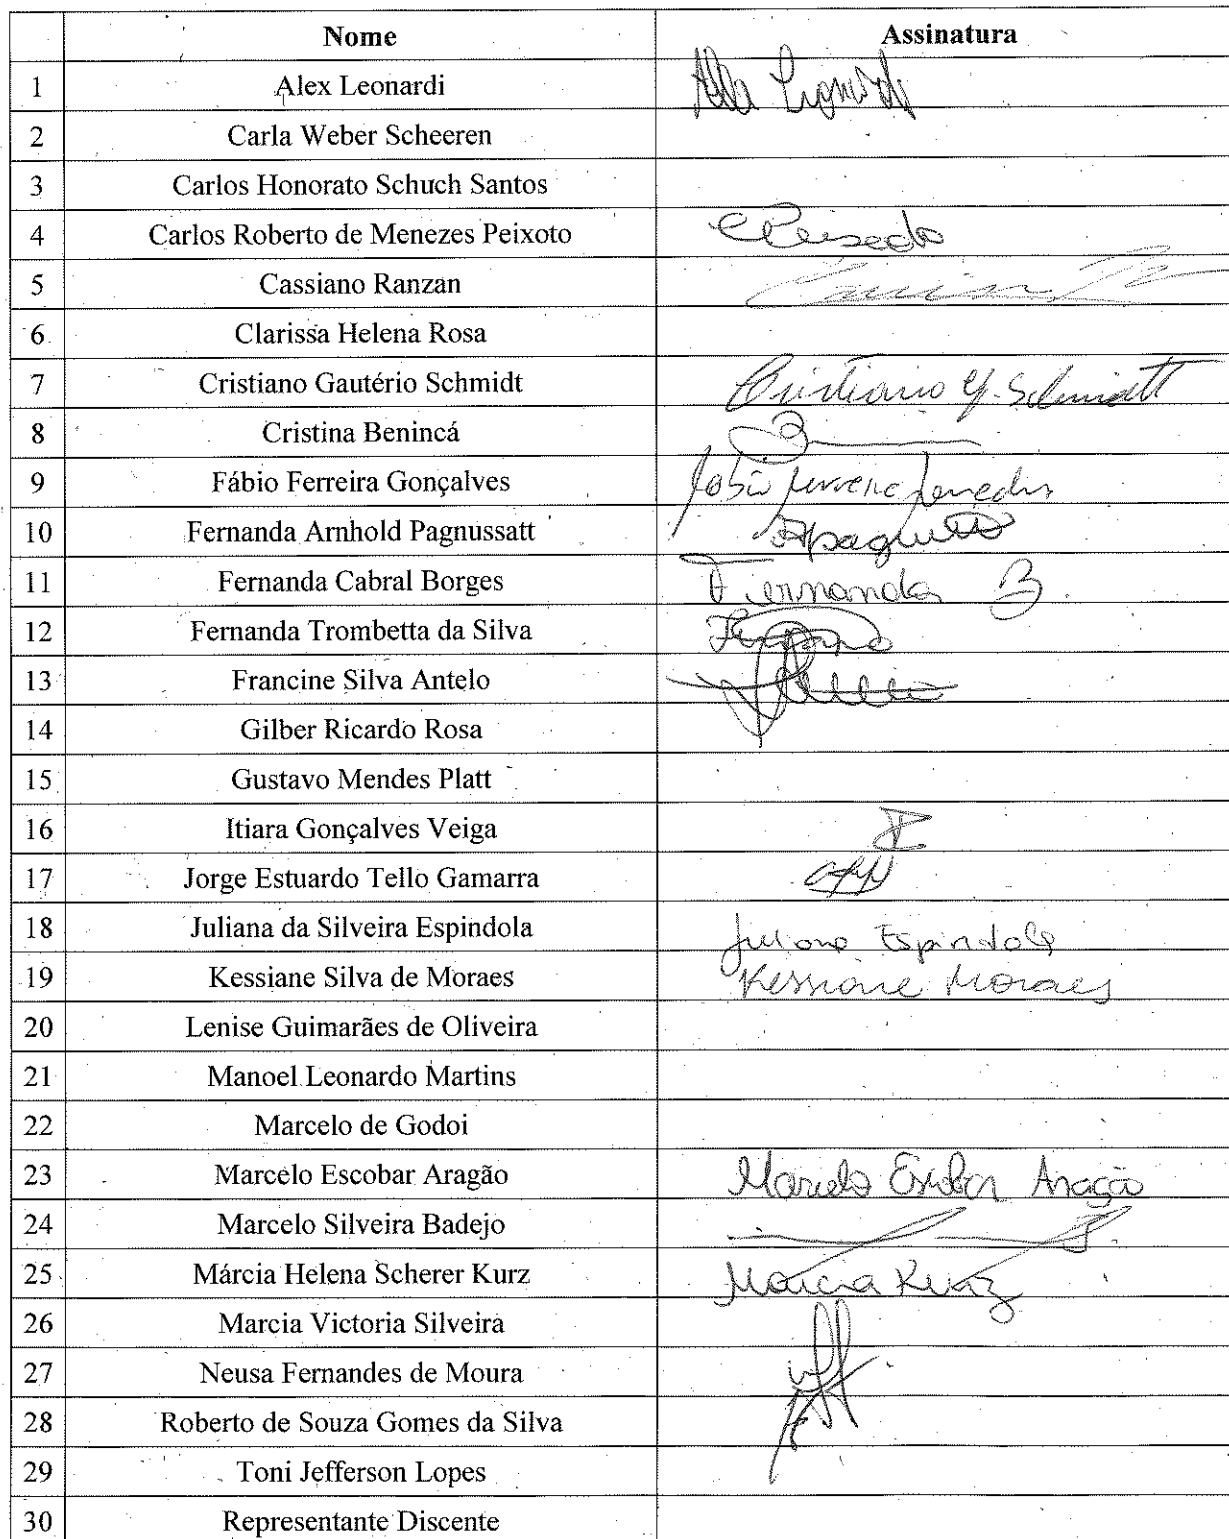 Nome Assinatura
1 Alex Leonardi
2 Carla Weber Scheeren
3 Carlos Honorato Schuch Santos
4 Carlos Roberto de Menezes Peixoto
5 Cassiano Ranzan
6 Clarissa Helena Rosa
7 Cristiano Gautério Schmidt Cristiano G. Schmidt
8 Cristina Benincá
9 Fábio Ferreira Gonçalves
10 Fernanda Arnhold Pagnussatt
11 Fernanda Cabral Borges Fernanda B.
12 Fernanda Trombetta da Silva
13 Francine Silva Antelo
14 Gilber Ricardo Rosa
15 Gustavo Mendes Platt
16 Itiara Gonçalves Veiga
17 Jorge Estuardo Tello Gamarra
18 Juliana da Silveira Espindola Juliana Espindola
19 Kessiane Silva de Moraes Kessiane Moraes
20 Lenise Guimarães de Oliveira
21 Manoel Leonardo Martins
22 Marcelo de Godoi
23 Marcelo Escobar Aragão Marcelo Escobar Aragão
24 Marcelo Silveira Badejo
25 Márcia Helena Scherer Kurz Marcia Kurz
26 Marcia Victoria Silveira
27 Neusa Fernandes de Moura
28 Roberto de Souza Gomes da Silva
29 Toni Jefferson Lopes
30 Representante Discente